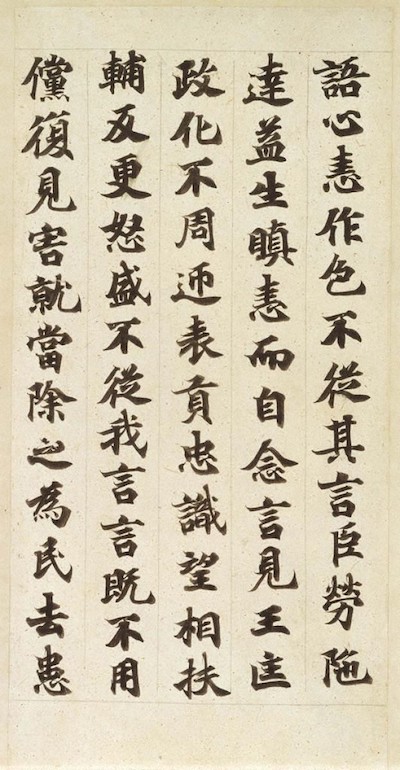 語心恚作色不從其言臣勞陁
達益生瞋恚而自念言見王匡
政化不周迊表貢忠識望相扶
輔反更怒盛不從我言言既不用
儻復見害就當除之為民去患